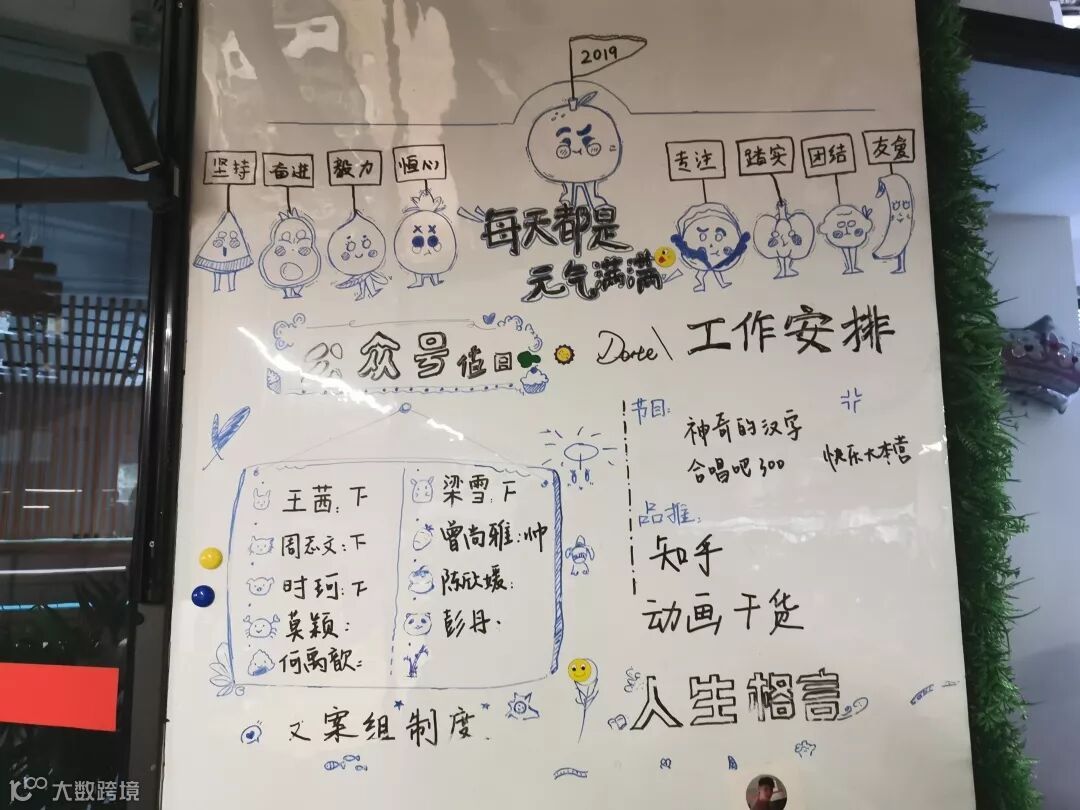 2019
坚持 奋进 毅力 恒心
专注 踏实 团结 友爱
每天都是
元气满满
公众号值日
工作安排
节目:
神奇的汉字
合唱吧300 快乐大本营
品推:
知乎
动画干货
王茜:下
周志文:下
时珂:下
莫颖:
何禹歆:
梁雪:下
曾尚雅:帅
陈欣媛:
彭丹.
文案组制度
人生格言
大数跨境